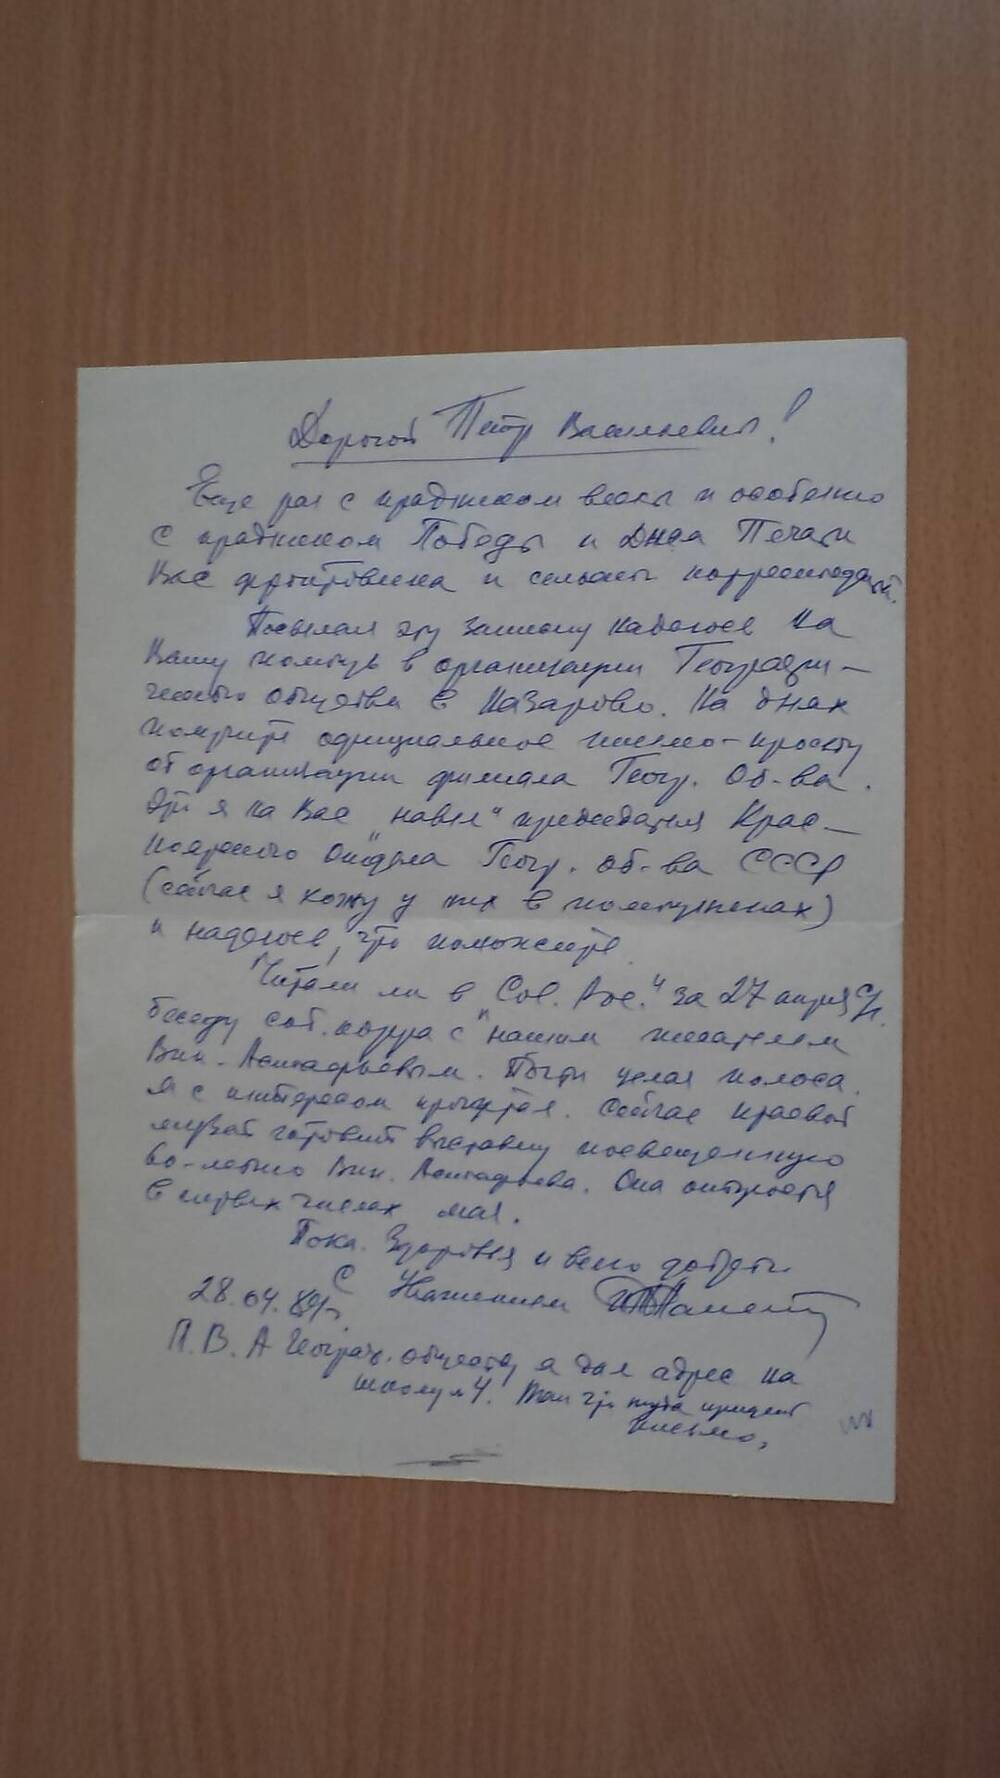 Дорогой Петр Васильевич!
Еще раз с праздником весны и особенно
с праздником Победы и Днем Печати
Вас фронтовика и сельского корреспондента.
Посылая эту записку надеюсь на
Вашу помощь в организации Географи-
ческого общества в Назарово. На днях
получите официальное письмо-просьбу
от организации филиала Геогр. Об-ва.
Это я на Вас "навел" председателя Крас-
ноярского Отдела Геогр. об-ва СССР
(сейчас я хожу у них в помощниках)
и надеюсь, что поможете.
Читали ли в "Сов. Рос." за 27 апреля с/г.
беседу соб. корра с нашим писателем
Вик. Астафьевым. Почти целая полоса.
Я с интересом прочитал. Сейчас краевой
музей готовит выставку посвещенную
60-летию Вик. Астафьева. Она откроется
в первых числах мая.
Пока. Здоровья и всего доброго
С Уважением
28.04.84г.
П.В. А Географ. обществу я дал адрес на
школу №4. Так что туда придет
письмо.